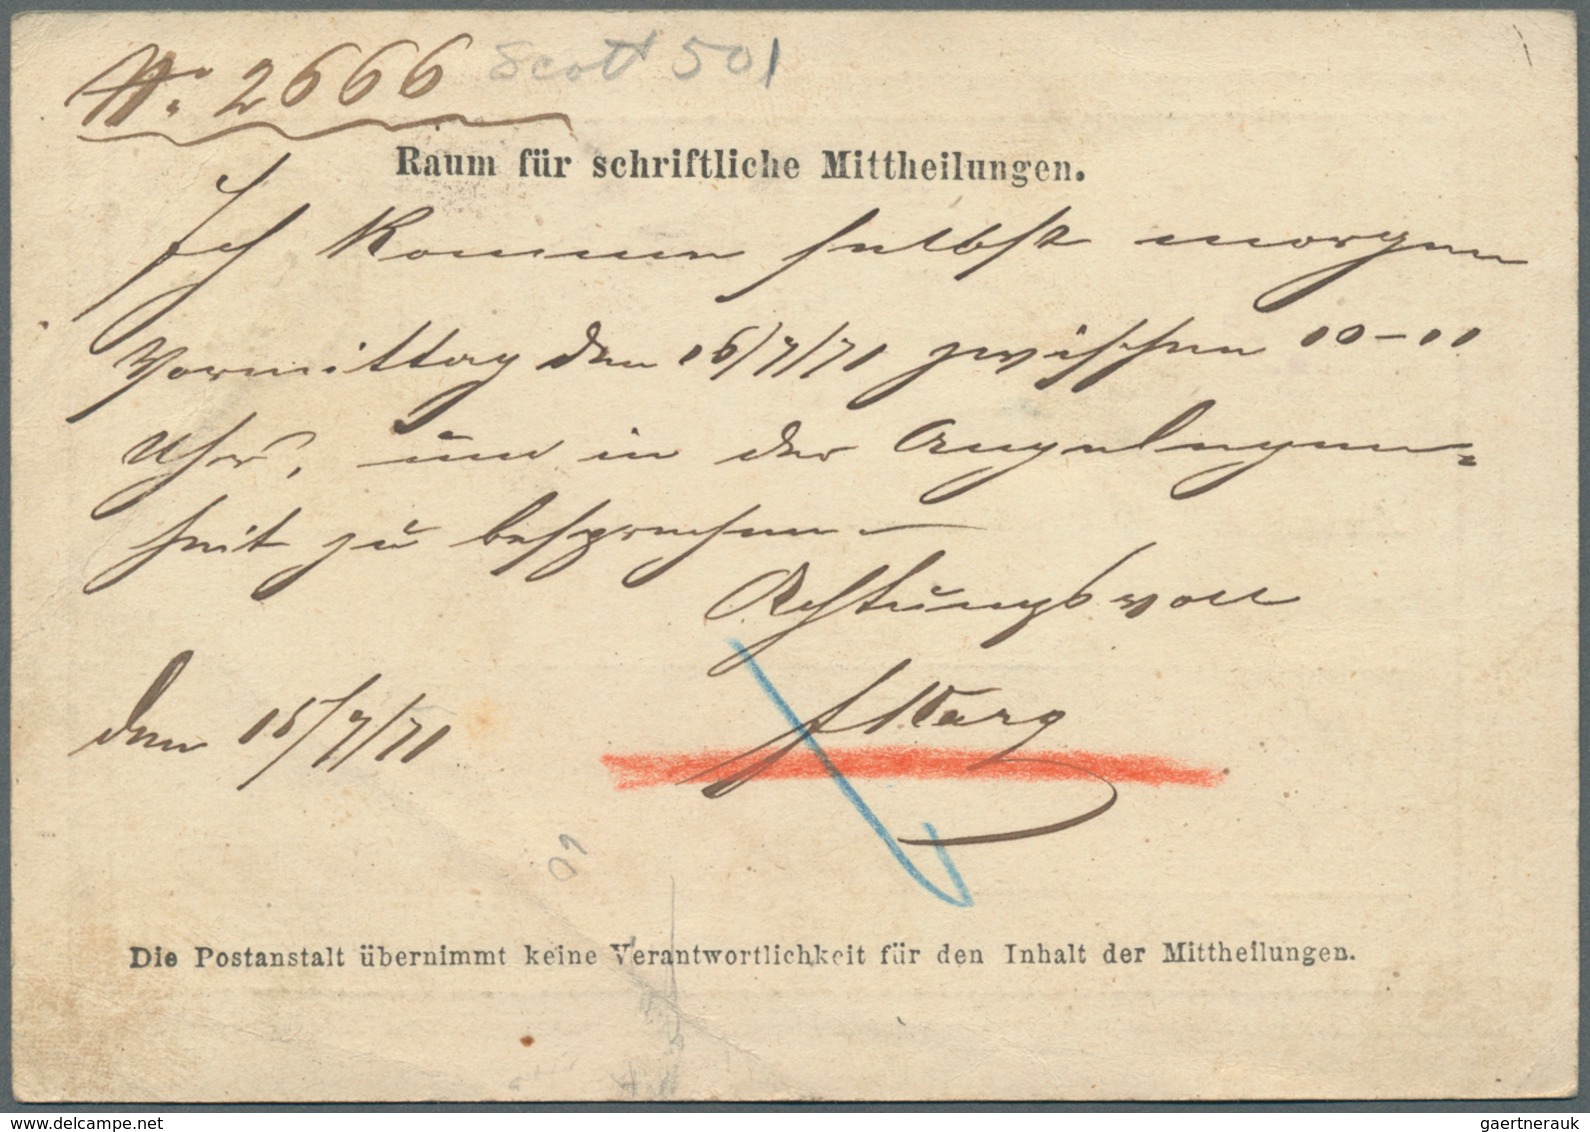 No. 2666 Scott 501
Raum für schriftliche Mittheilungen.
Ich komme selbst morgen
Vormittag den 16/7/71 zwischen 10-11
Uhr, um in der Angelegen=
heit zu besprechen
Achtungsvoll
den 15/7/71
60
Die Postanstalt übernimmt keine Verantwortlichkeit für den Inhalt der Mittheilungen.
gaertnerauk // delcampe.net